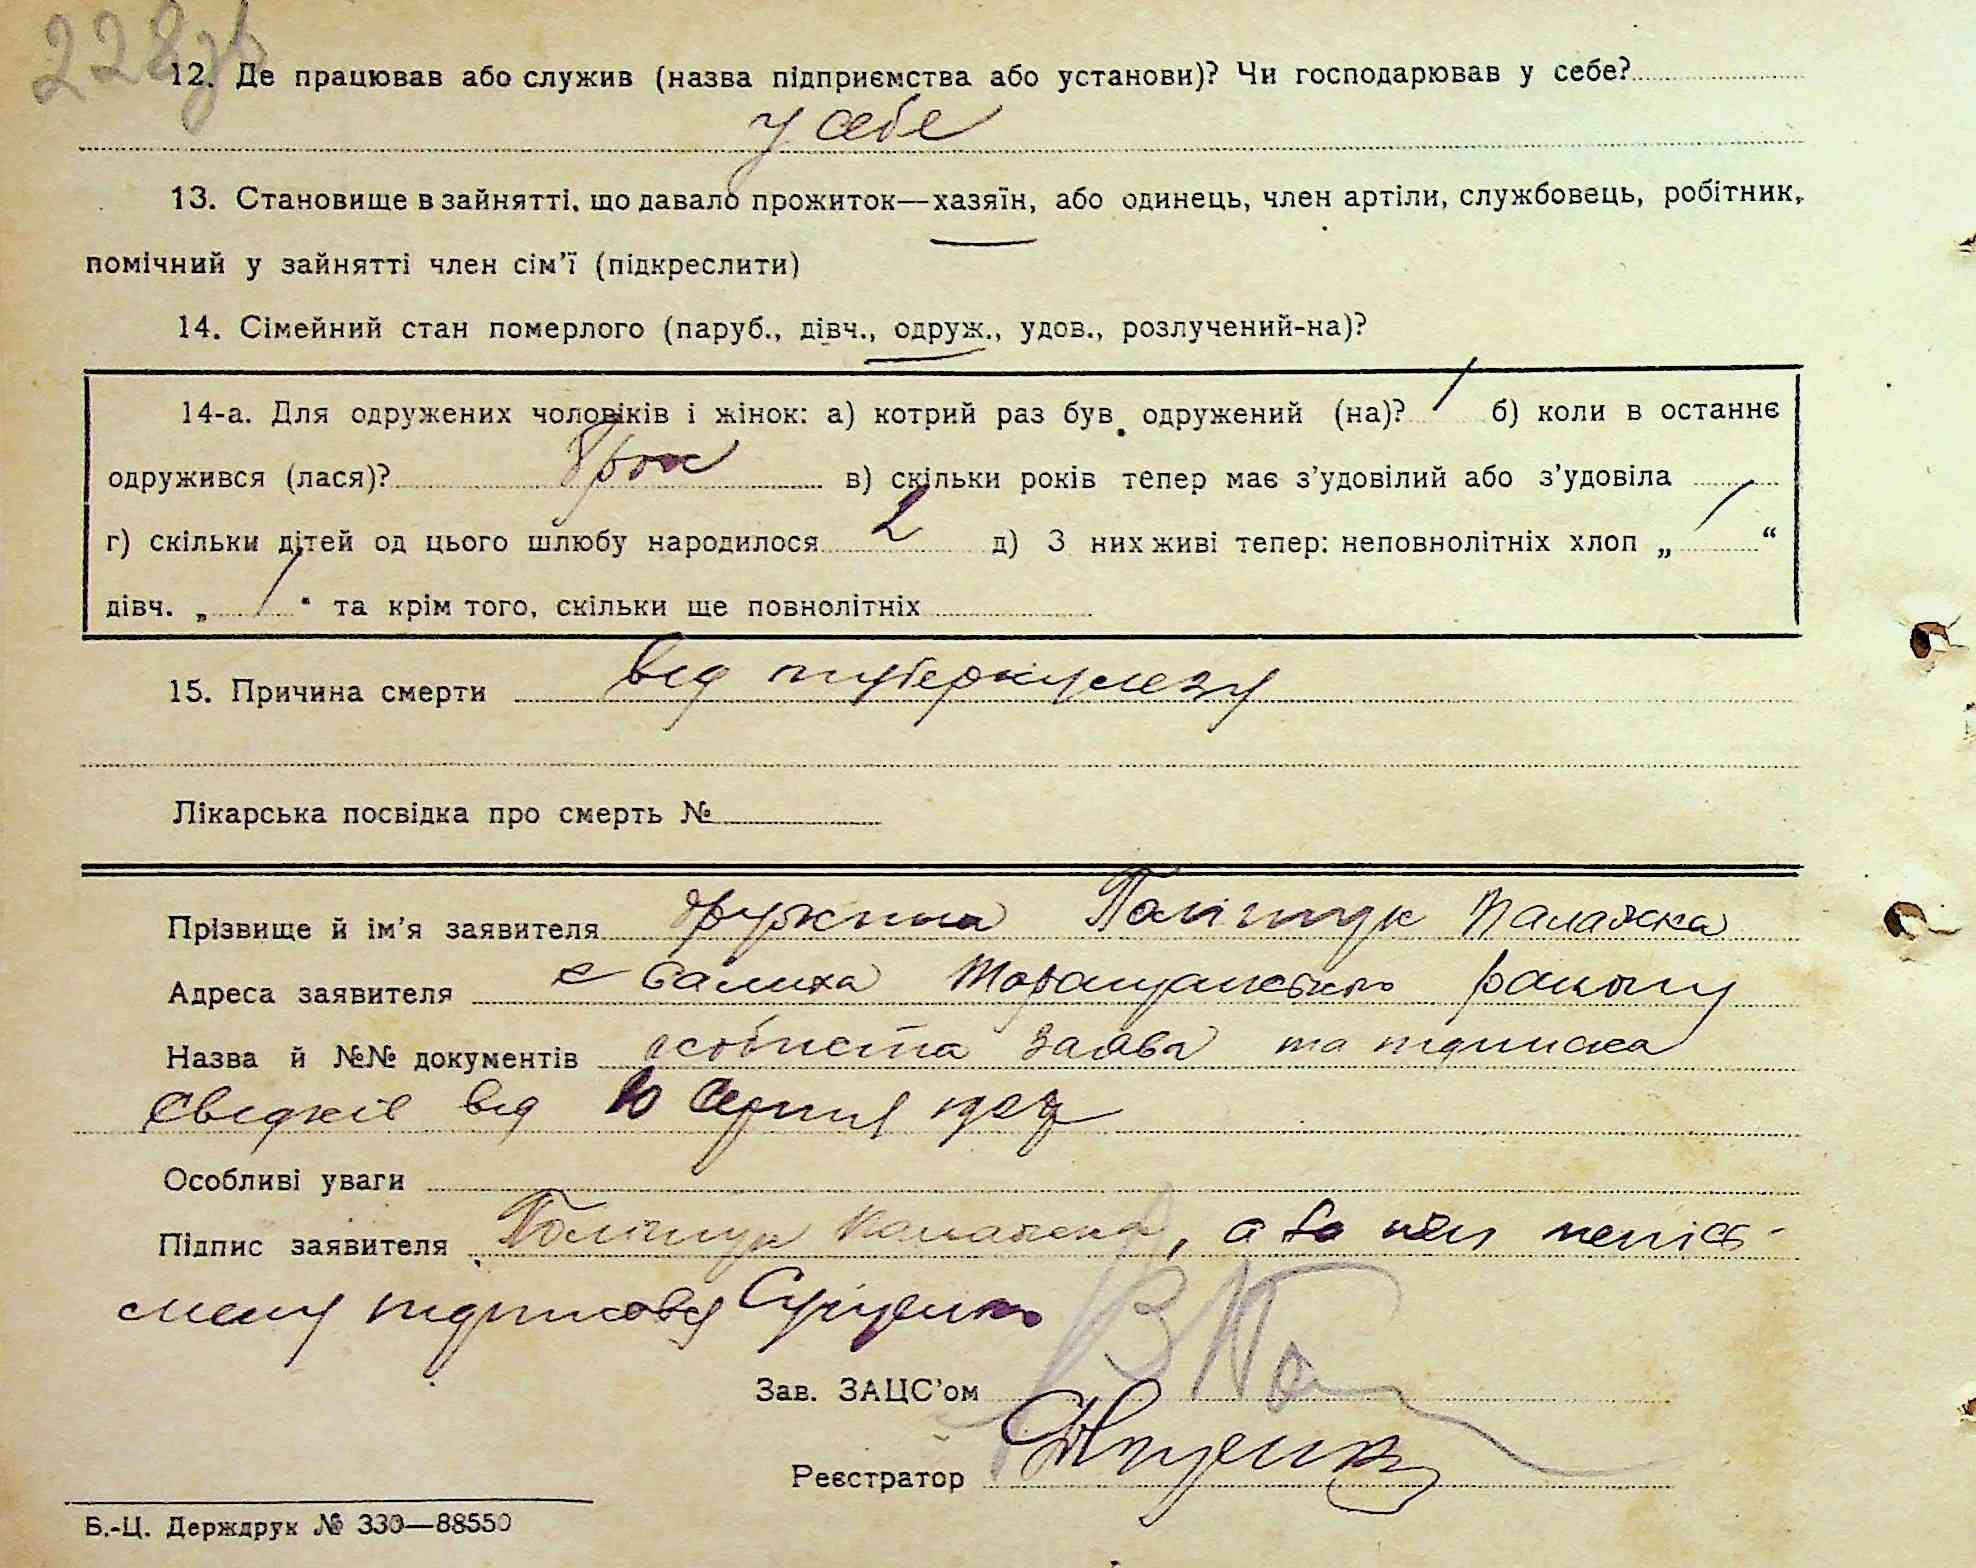 228зв
12. Де працював або служив (назва підприємства або установи)? Чи господарював у себе?
у себе
13. Становище в зайнятті, що давало прожиток—хазяїн, або одинець, член артіли, службовець, робітник,
помічний у зайнятті член сім’ї (підкреслити)
14. Сімейний стан померлого (паруб., дівч., одруж., удов., розлучений-на)?
14-а. Для одружених чоловіків і жінок: а) котрий раз був одружений (на)? 1 б) коли в останнє
одружився (лася)? 8 рок в) скільки років тепер має з’удовілий або з’удовіла
г) скільки дітей од цього шлюбу народилося 2 д) З них живі тепер: неповнолітніх хлоп „ 1 “
дівч. „ 1 “ та крім того, скільки ще повнолітніх
15. Причина смерти від туберкулезу
Лікарська посвідка про смерть №
Прізвище й ім’я заявителя дружина Поліщук Палажка
Адреса заявителя с Салиха Торащанського району
Назва й №№ документів особиста заява та підписка
свідків від 10 серпня
Особливі уваги
Підпис заявителя Поліщук Палажка, а за неї непісь-
менну підписався
Зав. ЗАЦС’ом
Реєстратор
Б.-Ц. Держдрук № 330—88550